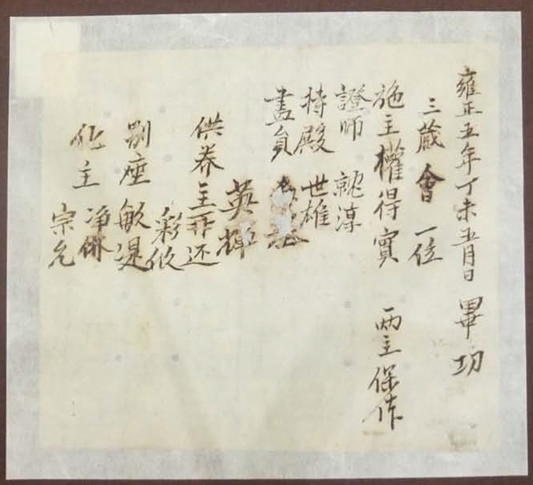 雍正五年丁未五月日 畢功
三蔵會一位
施主權得實 兩主保体
證師 就淳
持殿 世雄
畵員
英輝
供养主 还
彩俊
別座敏湜
化主 淨俻
宗允